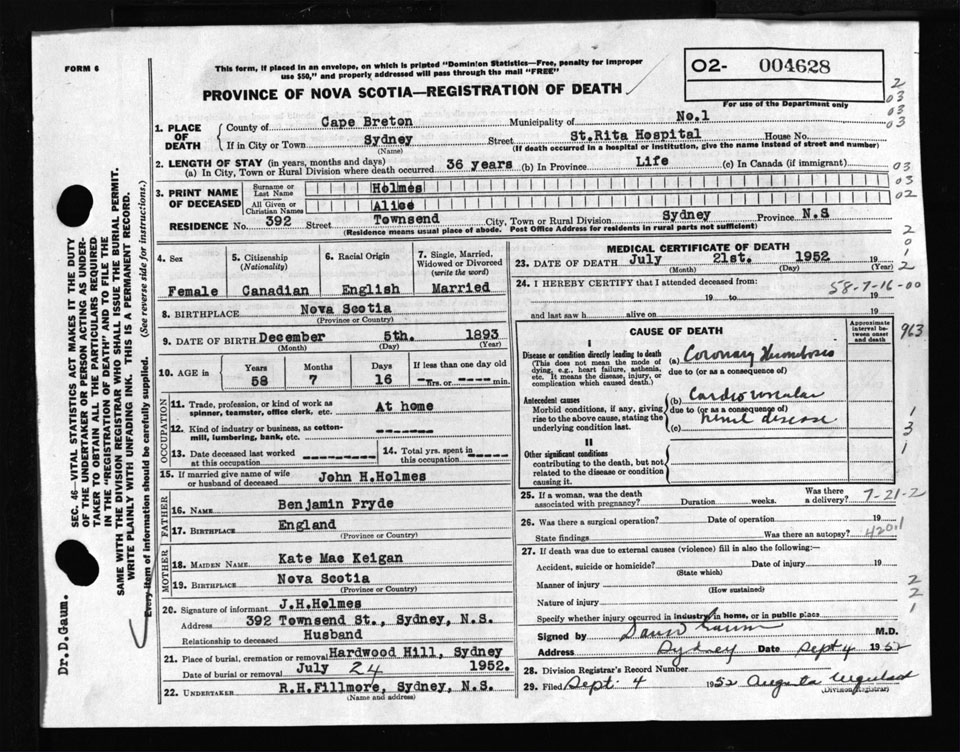 FORM 6
This form, if placed in an envelope, on which is printed "Dominion Statistics—Free, penalty for improper
use $50," and properly addressed will pass through the mail "FREE"
O2- 004628
For use of the Department only
PROVINCE OF NOVA SCOTIA—REGISTRATION OF DEATH
2
03
03
03
1. PLACE OF DEATH
County of Cape Breton Municipality of No.1
If in City or Town Sydney Street St.Rita Hospital House No.
(Name) (If death occurred in a hospital or institution, give the name instead of street and number)
2. LENGTH OF STAY (in years, months and days)
(a) In City, Town or Rural Division where death occurred 36 years (b) In Province Life (c) In Canada (if immigrant)
03
03
02
3. PRINT NAME OF DECEASED
Surname or Last Name Holmes
All Given or Christian Names Alice
RESIDENCE No. 392 Street Townsend City, Town or Rural Division Sydney Province N.S
(Residence means usual place of abode. Post Office Address for residents in rural parts not sufficient)
2
0
1
2
4. Sex
Female
5. Citizenship (Nationality)
Canadian
6. Racial Origin
English
7. Single, Married, Widowed or Divorced (write the word)
Married
8. BIRTHPLACE Nova Scotia
(Province or Country)
9. DATE OF BIRTH December 5th. 1893
(Month) (Day) (Year)
10. AGE in
Years Months Days If less than one day old
58 7 16 hrs. or min.
OCCUPATION
11. Trade, profession, or kind of work as spinner, teamster, office clerk, etc. At home
12. Kind of industry or business, as cotton-mill, lumbering, bank, etc. -------
13. Date deceased last worked at this occupation --------
14. Total yrs. spent in this occupation ------
15. If married give name of wife or husband of deceased John H.Holmes
FATHER
16. NAME Benjamin Pryde
17. BIRTHPLACE England
(Province or Country)
MOTHER
18. MAIDEN NAME Kate Mac Keigan
19. BIRTHPLACE Nova Scotia
(Province or Country)
20. Signature of informant J.H.Holmes
Address 392 Townsend St., Sydney, N.S.
Relationship to deceased Husband
21. Place of burial, cremation or removal Hardwood Hill, Sydney
Date of burial or removal July 24 1952.
22. UNDERTAKER R.H.Fillmore, Sydney, N.S.
(Name and address)
MEDICAL CERTIFICATE OF DEATH
23. DATE OF DEATH July 21st. 1952 19
(Month) (Day) (Year)
24. I HEREBY CERTIFY that I attended deceased from: 58-7-16-00
19 to 19
and last saw h alive on 19
CAUSE OF DEATH
Approximate interval between onset and death
963
I
Disease or condition directly leading to death
(This does not mean the mode of dying, e.g., heart failure, asthenia, etc. It means the disease, injury, or complication which caused death.)
(a) Coronary Thrombosis
due to (or as a consequence of)
Antecedent causes
Morbid conditions, if any, giving rise to the above cause, stating the underlying condition last.
(b) Cardiovascular
due to (or as a consequence of)
(c) renal disease
1
3
1
II
Other significant conditions
contributing to the death, but not related to the disease or condition causing it.
25. If a woman, was the death associated with pregnancy? Duration weeks. Was there a delivery? 7-21-2
26. Was there a surgical operation? Date of operation 19
State findings Was there an autopsy? 4201
27. If death was due to external causes (violence) fill in also the following:—
Accident, suicide or homicide? Date of injury 19
(State which)
Manner of injury
(How sustained)
Nature of injury
Specify whether injury occurred in industry, in home, or in public place
2
2
1
Signed by David Gaum M.D.
Address Sydney Date Sept 4 1952
28. Division Registrar's Record Number
29. Filed Sept. 4 1952 Augusta
(Division Registrar)
SEC. 46—VITAL STATISTICS ACT MAKES IT THE DUTY
OF THE UNDERTAKER OR PERSON ACTING AS UNDER-
TAKER TO OBTAIN ALL THE PARTICULARS REQUIRED
IN THE "REGISTRATION OF DEATH" AND TO FILE THE
SAME WITH THE DIVISION REGISTRAR WHO SHALL ISSUE THE BURIAL PERMIT.
WRITE PLAINLY WITH UNFADING INK. THIS IS A PERMANENT RECORD.
Every item of information should be carefully supplied. (See reverse side for instructions.)
Dr.D.Gaum.